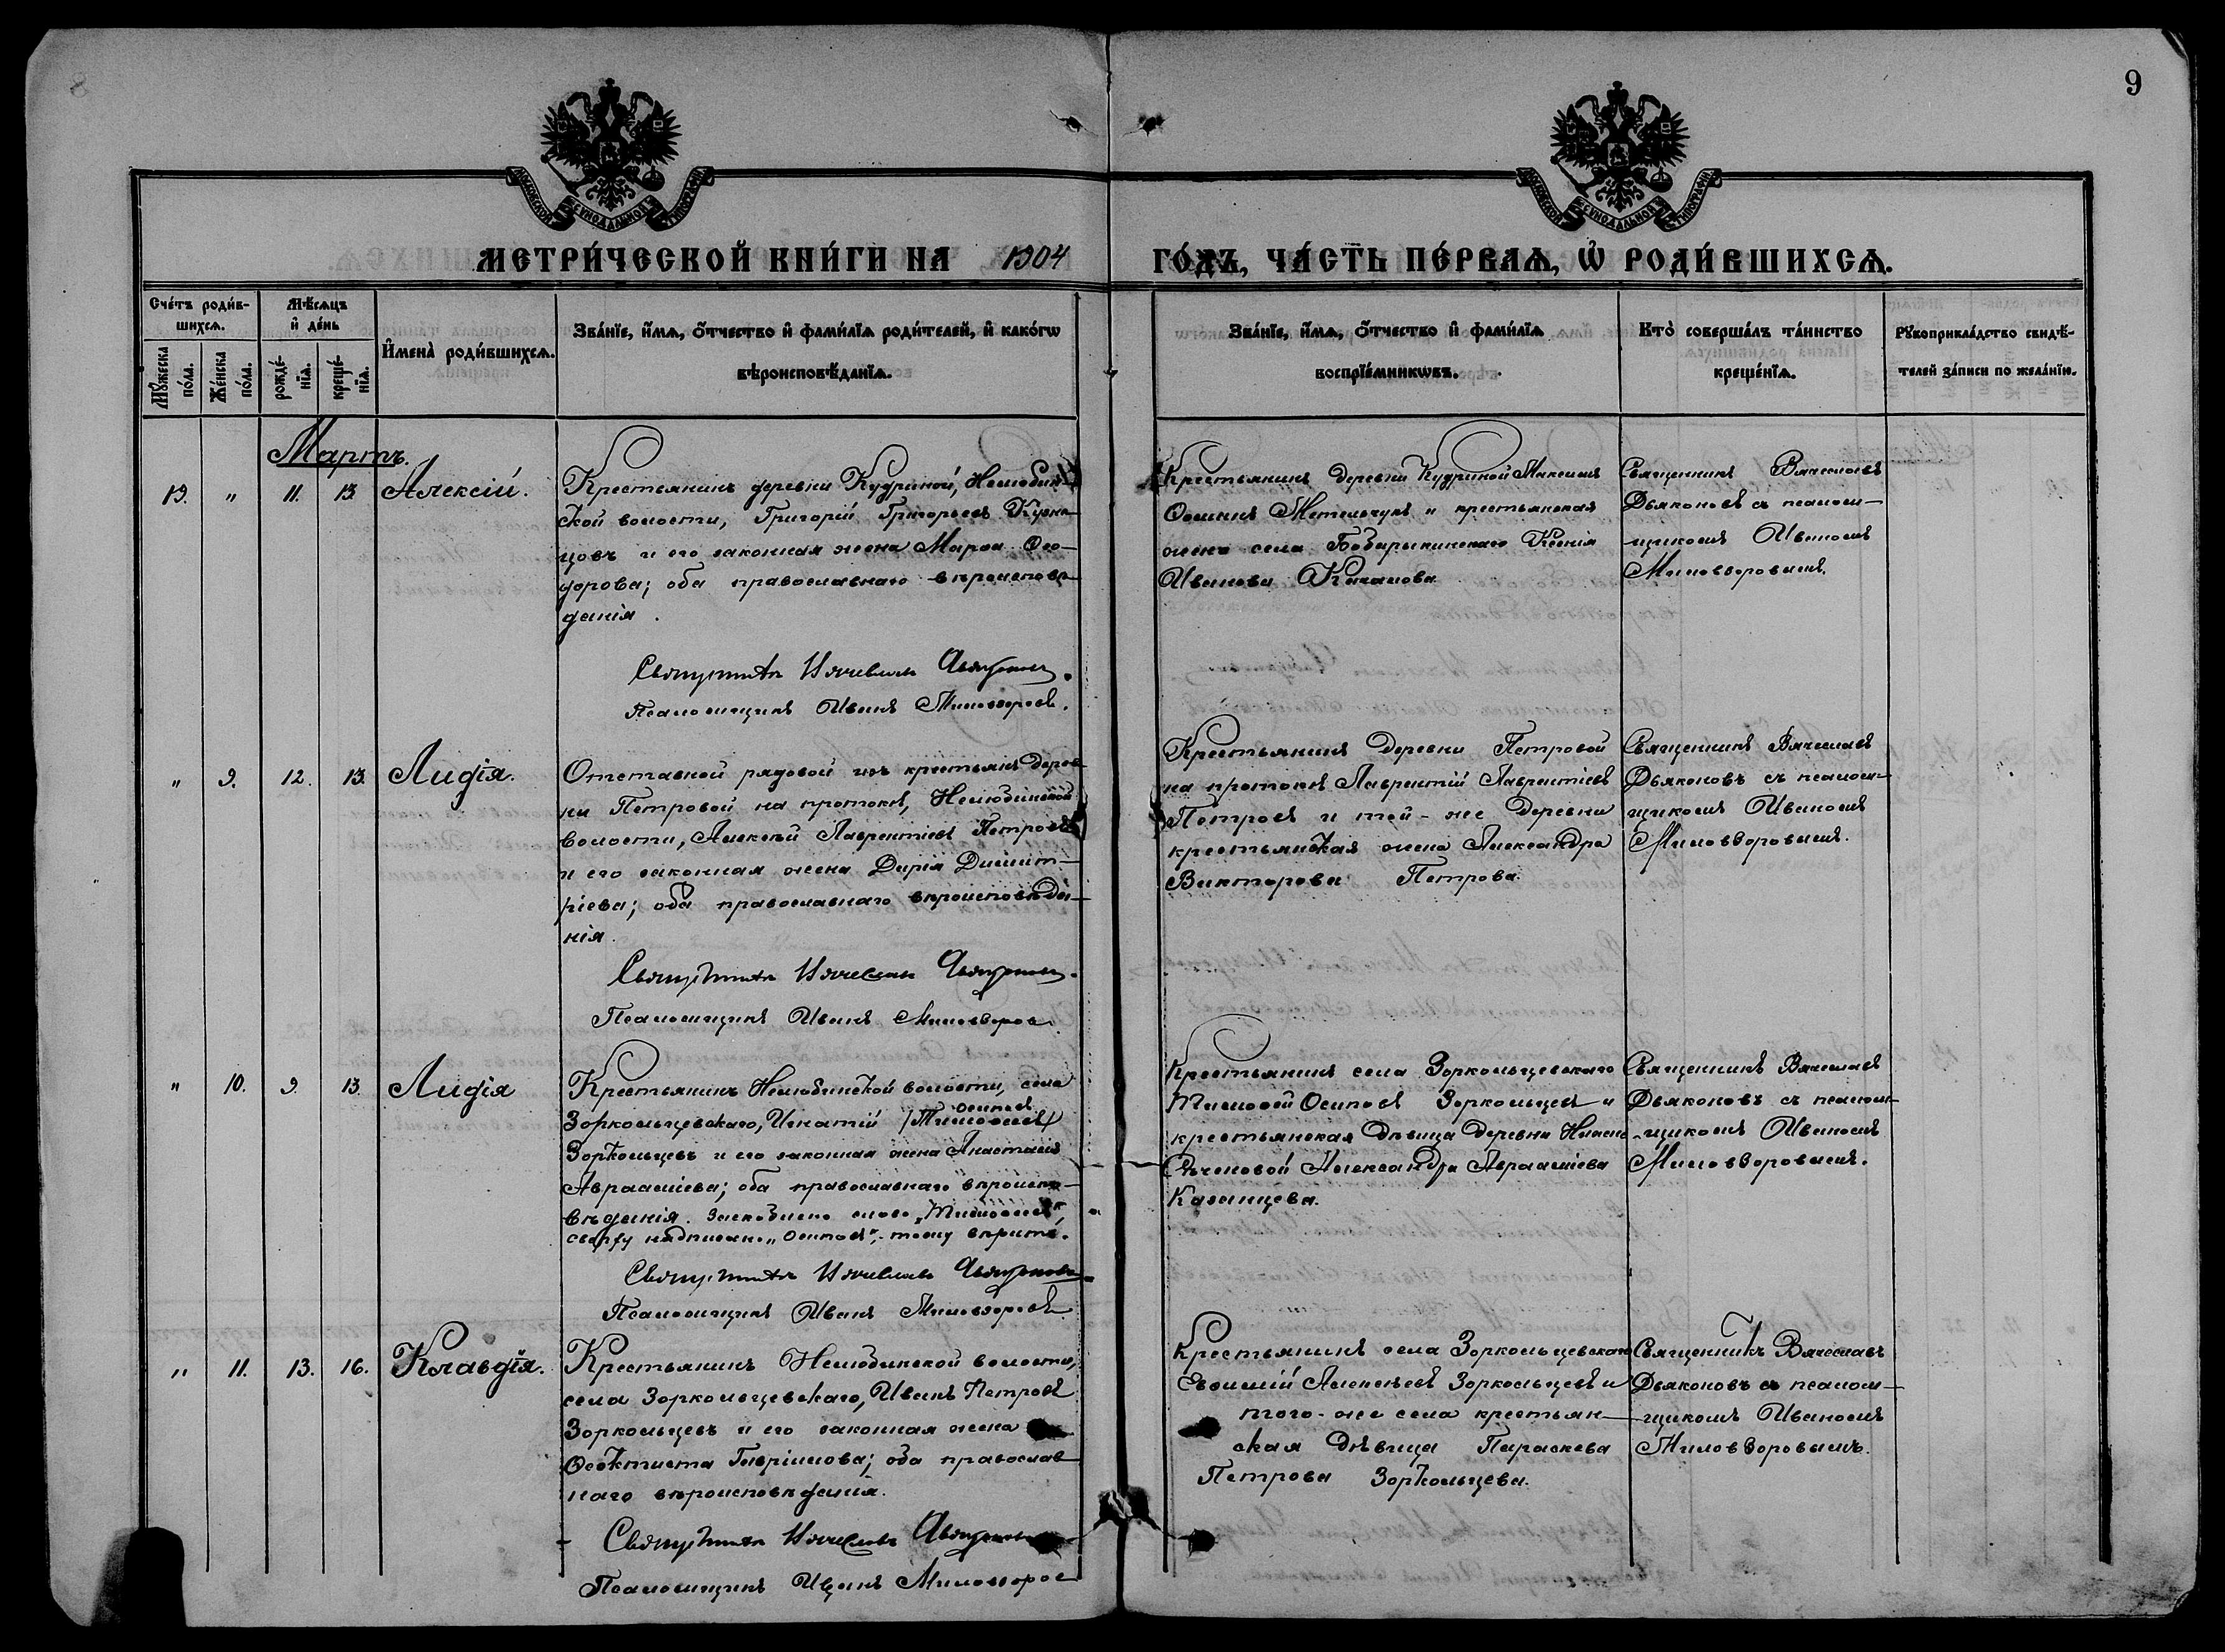 9
МОСКОВСКОЙ СѴНОДАЛЬНОЙ ТИПОГРАФІИ
МОСКОВСКОЙ СѴНОДАЛЬНОЙ ТИПОГРАФІИ
МЕТРИ́ЧЕСКОЙ КНИ́ГИ НА 1904 ГО́ДЪ, ЧА́СТЬ ПЕ́РВАѦ, Ѡ РОДИ́ВШИХСѦ.
Счéтъ роди́в-
шихсѧ.
Мꙋжеска
по́ла.
Же́нска
по́ла.
Мѣ́сѧцъ
и҆ де́нь
рожде́-
нїѧ.
креще́-
нїѧ.
И҆мена̀ роди́вшихсѧ.
Зва́нїе, и҆́мѧ, ѻ҆́тчество и҆ фами́лїѧ роди́телей, и҆ како́гѡ
вѣроисповѣ́данїѧ.
Зва́нїе, и҆́мѧ, ѻ҆́тчество и҆ фами́лїѧ
воспрїе́мникѡвъ.
Кто̀ соверша́лъ та́инство
креще́нїѧ.
Рꙋкоприкла́дство свидѣ́-
телей за́писи по жела́нїю.
Мартъ.
19. " 11. 13 Алексій.
Крестьянинъ деревни Кудриной, Нелюбин-
ской волости, Григорій Григорьевъ Кузне-
цовъ и его законная жена Марѳа Ѳео-
дорова; оба православнаго вѣроисповѣ-
данія.
Священникъ Вячеславъ Дьяконовъ.
Псаломщикъ Иванъ Миловзоровъ.
Крестьянинъ деревни Кудриной Максимъ
Осипин Метельчукъ и крестьянская
жена села Бобарыкинскаго Ксенія
Иванова Качалова
Священникъ Вячеславъ
Дьяконовъ съ псалом-
щикомъ Иваномъ
Миловзоровымъ.
" 9. 12. 13. Лидія.
Отставной рядовой изъ крестьянъ дерев-
ни Петровой на протокѣ, Нелюбинской
волости, Алексѣй Лаврентіевъ Петровъ
и его законная жена Дарія Димит-
ріева; оба православнаго вѣроисповѣда-
нія.
Священникъ Вячеславъ Дьяконовъ.
Псаломщикъ Иванъ Миловзоровъ.
Крестьянинъ деревни Петровой
на протокѣ Лаврентій Лаврентіевъ
Петровъ и той-же деревни
крестьянская жена Александра
Викторова Петрова.
Священникъ Вячеславъ
Дьяконовъ съ псалом-
щикомъ Иваномъ
Миловзоровымъ.
" 10. 9. 13 Лидія
Крестьянинъ Нелюбинской волости, села
Осиповъ
Зоркольцевскаго, Игнатій (Тимоѳеевъ)
Зоркольцевъ и его законная жена Анастасія
Авраамiева; оба православнаго вѣроиспо-
вѣданія. Заскоблено слово "Тимоѳеевъ",
сверху надписано "Осиповъ", - тому вѣрить.
Священникъ Вячеславъ Дьяконовъ
Псаломщикъ Иванъ Миловзоровъ
Крестьянинъ села Зоркольцевскаго
Тимоѳей Осиповъ Зоркольцевъ и
крестьянская дѣвица деревни
Александра Авраамiева
Казанцева.
Священникъ Вячеславъ
Дьяконовъ съ псалом-
щикомъ Иваномъ
Миловзоровымъ.
" 11. 13. 16. Клавдія.
Крестьянинъ Нелюбинской волости,
села Зоркольцевскаго, Иванъ Петровъ
Зоркольцевъ и его законная жена
Ѳеоктиста Гаврiилова; оба православ-
наго вѣроисповѣданія.
Священникъ Вячеславъ Дьяконовъ
Псаломщикъ Иванъ Миловзоровъ
Крестьянинъ села Зоркольцевскаго
Евѳимій Алексѣевъ Зоркольцевъ и
того-же села крестьян-
ская дѣвица Параскева
Петрова Зоркольцева.
Священникъ Вячеславъ
Дьяконовъ съ псалом-
щикомъ Иваномъ
Миловзоровымъ.